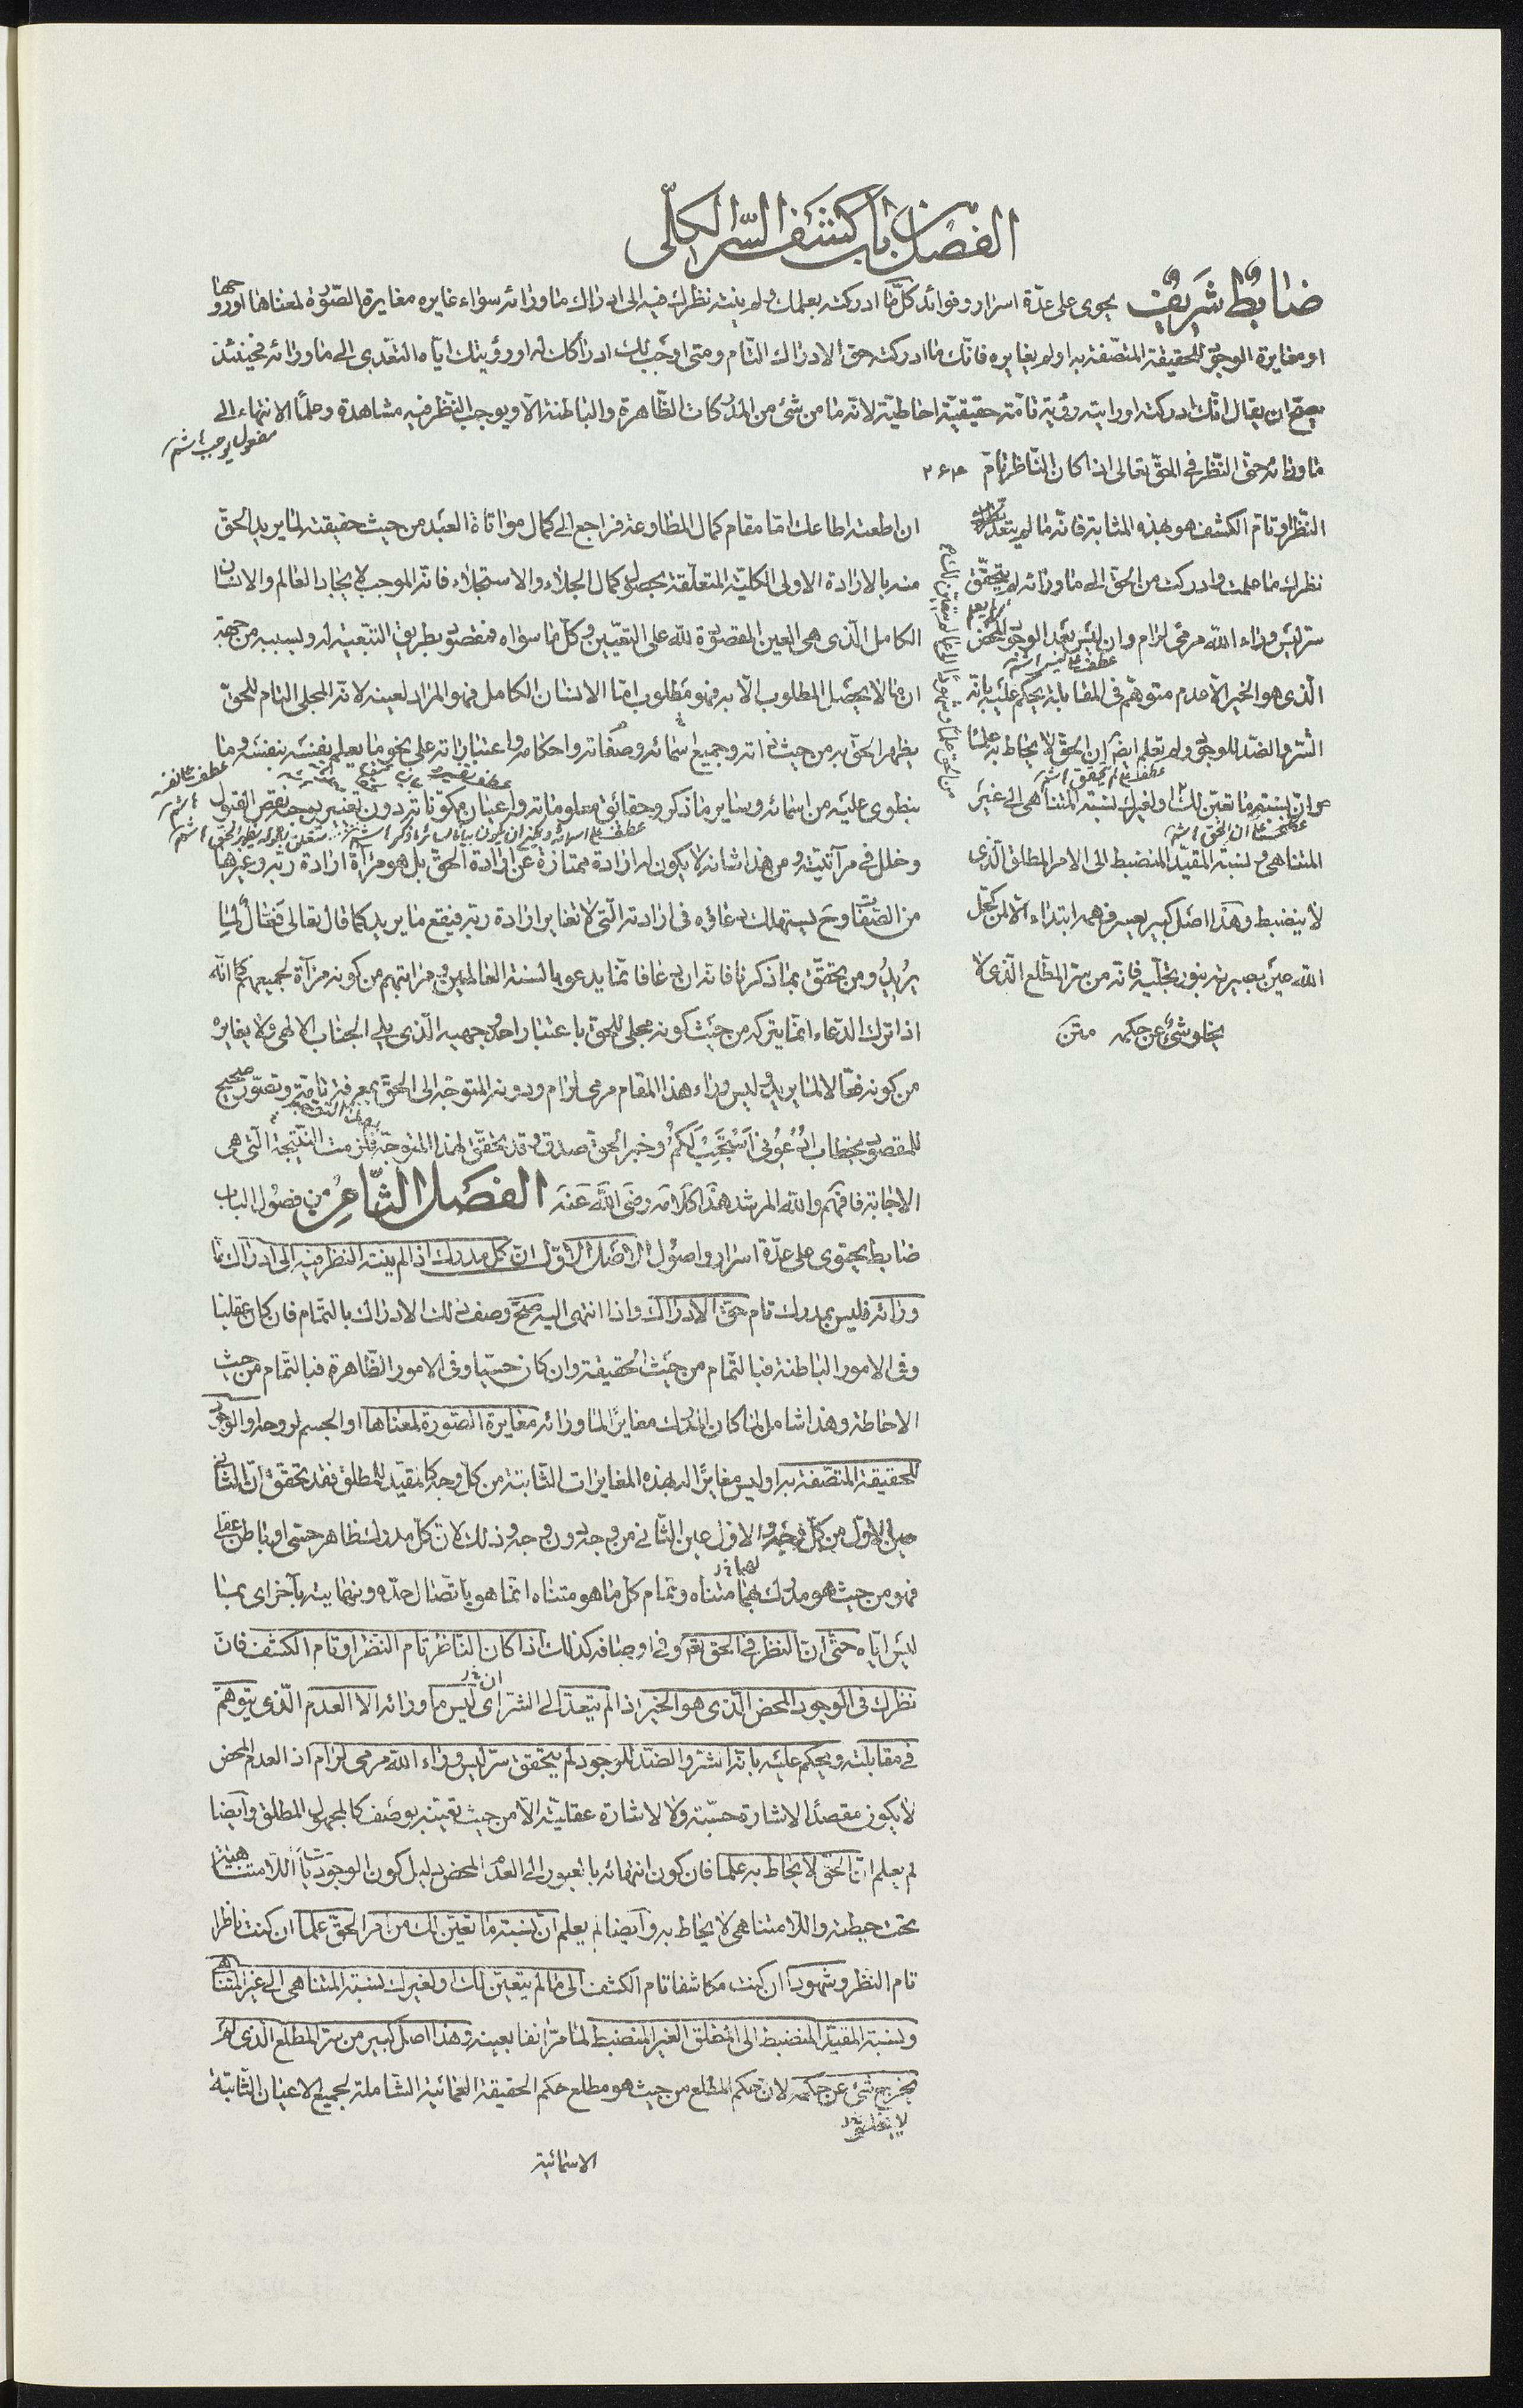 الفصل باب كشف السّر الكلّى
ضابط شريف يحوى على عدّة اسرار وفوائد كلّ ما ادركته بعلمك ولم ينته نظرك فيه الى ادراك ما ورائه سواء غايره مغايرة الصّورة لمعناها او روحها
او مغايرة الوجود للحقيقة المتصّفة به او لم يغايره فانّك ما ادركته حق الادراك التّام ومتى اوجب لك ادراكك له او رؤيتك ايّاه التعدّى الى ما ورائه فحينئذ
يصحّ ان يقال انّك ادركته او رايته رؤية تامّة حقيقيّة احاطيّة لانّه ما من شئ من المدركات الظّاهرة والباطنة الّا ويوجب النّظر فيه مشاهدة وعلمًا الانتهاء الى
مفعول يوجب
ما ورائه حتى النّظر فى الحقّ تعالى اذا كان النّاظر تامّ
النّظر او تامّ الكشف هو بهذه المثابة فانّه ما لم يتعدّ
نظرك ما علمت وادركت من الحقّ الى ما ورائه لم يتحقّق
سرّ ليس وراء الله مرمى لرام وان ليس بعد الوجود المحض
الّذى هو الخير الّا عدم متوهّم فى المقابلة يحكم عليه بانّه
الشّر والضدّ للوجود ولم تعلم ايضا ان الحقّ لا يحاط به علما
وانّ نسبة ما تعيّن لك او لغيرك نسبة المتناهى الى غير
المتناهى ونسبة المقيّد المنضبط الى الامر المطلق الّذى
لا ينضبط وهذا اصل كبير يعسر فهمه ابتداء الّا لمن كحّل
الله عين بصيرته بنور تجلّيه فانّه من سرّ المطّلع الّذى لا
يخلو شئ عن حكمه متن
ان اطعته اطاعك امّا مقام كمال المطاوعة فراجع الى كمال مواتاة العبد من حيث حقيقته لما يريد الحقّ
منه بالارادة الاولى الكليّة المتعلّقة بحصول كمال الجلاء والاستجلاء فانّه الموجب لايجاد العالم والانسان
الكامل الّذى هى العين المقصودة لله على التعيّين وكلّ ما سواه فمقصود بطريق التّبعيّة له وبسببه من جهة
ان ما لا يحصل المطلوب الّا به فهو مطلوب امّا الانسان الكامل فهو المراد لعينه لانّه المجلى التام للحقّ
يظهر الحقّ به من حيث ذاته وجميع اسمائه وصفاته واحكامه واعتباراته على نحو ما يعلم نفسه بنفسه وما
ينطوى عليه من اسمائه وساير ما ذكر وحقائق معلوماته واعيان مكوّناته دون تغيير يوجبه نقص القبول
وخلل فى مرآتيّته ومن هذا شانه لا يكون له ارادة ممتازة عن ارادة الحقّ بل هو مرآة ارادة ربّه وغيرها
من الصّفات وح يستهلك دعاؤه فى ارادته الّتى لا تغاير ارادة ربّه فيقع ما يريد كما قال تعالى فَعَّالٌ لِمَا
يُرِيدُ ومن تحقّق بما ذكرنا فانّه ان دعا فانّما يدعو بالسنة العالمين ومراتبهم من كونه مرآة لجميعهم كما انّه
اذا ترك الدّعاء انّما يتركه من حيث كونه مجلى للحقّ باعتبار احد وجهيه الّذى يلى الجناب الالهى ولا يغايره
من كونه فعّالا لما يريد وليس وراء هذا المقام مرمى لرام ودونه المتوجّه الى الحقّ بمعرفة تامّة وتصوّر صحيح
للمقصود بخطاب ادْعُونِى اَسْتَجِبْ لَكُمْ وخبر الحقّ صدق وقد تحقّق لهذا المتوجّه فلزمت النّتيجة الّتى هى
الاجابة فافهم والله المرشد هذا كلامه رضى الله عنه الفصل الثّامن من فصول الباب
ضابط يحتوى على عدّة اسرار واصول الاصل الاوّل انّ كلّ مدرك اذا لم ينته النظر فيه الى ادراك ما
ورائه فليس بمدرك تام حق الادراك واذا انتهى اليه صحّ وصف ذلك الادراك بالتّمام فان كان عقليّا
وفى الامور الباطنة فبالتّمام من حيث الحقيقة وان كان حسّيا وفى الامور الظّاهرة فبالتّمام من حيث
الاحاطة وهذا شامل لما كان المدرك مغايرًا لما ورائه مغايرة الصّورة لمعناها او الجسم لروحه او الوجود
للحقيقة المتصّفة به او ليس مغايرًا له بهذه المغايرات الثّابتة من كلّ وجه كالمقيّد للمطلق فقد تحقّق انّ الثّانى
عين الاوّل من كلّ وجه والاوّل عين الثّانى من وجه دون وجه وذلك لانّ كلّ مدرك ظاهر حسّى او باطن عقلى
فهو من حيث هو مدرك بهما متناه وتمام كلّ ما هو متناه انّما هو باتّصال حدّه ونهايته بآخر اى بما
ليس ايّاه حتّى انّ النظر فى الحقّ تعالى وفى اوصافه كذلك اذا كان النّاظر تام النظر او تام الكشف فانّ
نظرك فى الوجود المحض الّذى هو الخير اذا لم يتعدّ الى الشّر اى ليس ما ورائه الّا العدم الّذى يتوهّم
فى مقابلته ويحكم عليه بانّه الشّر والضدّ للوجود لم يتحقّق سرّ ليس وراء الله مرمى لرام اذ العدم المحض
لا يكون مقصدًا لاشارة حسّية ولا لاشارة عقليّة الّا من حيث تعيّنه بوصف كالمجهول المطلق وايضا
لم يعلم انّ الحقّ لا يحاط به علما فان كون انتهائه بالعبور الى العدم المحض دليل كون الوجودات اللّامتناهية
تحت حيطته واللّا متناهى لا يحاط به وايضا لم يعلم انّ نسبة ما تعيّن لك من امر الحقّ علما ان كنت ناظرا
تام النظر وشهودا ان كنت مكاشفا تام الكشف الى ما لم يتعيّن لك او لغيرك نسبة المتناهى الى غير المتناهى
ونسبة المقيّد المنضبط الى المطلق الغير المنضبط لما مرّ انفا بعينه وهذا اصل كبير من سرّ المطلع الّذى لا
يخرج شئ عن حكمه لانّ حكم المطّلع من حيث هو مطلع حكم الحقيقة العمائية الشّاملة لجميع الاعيان الثّابتة
الاسمائية